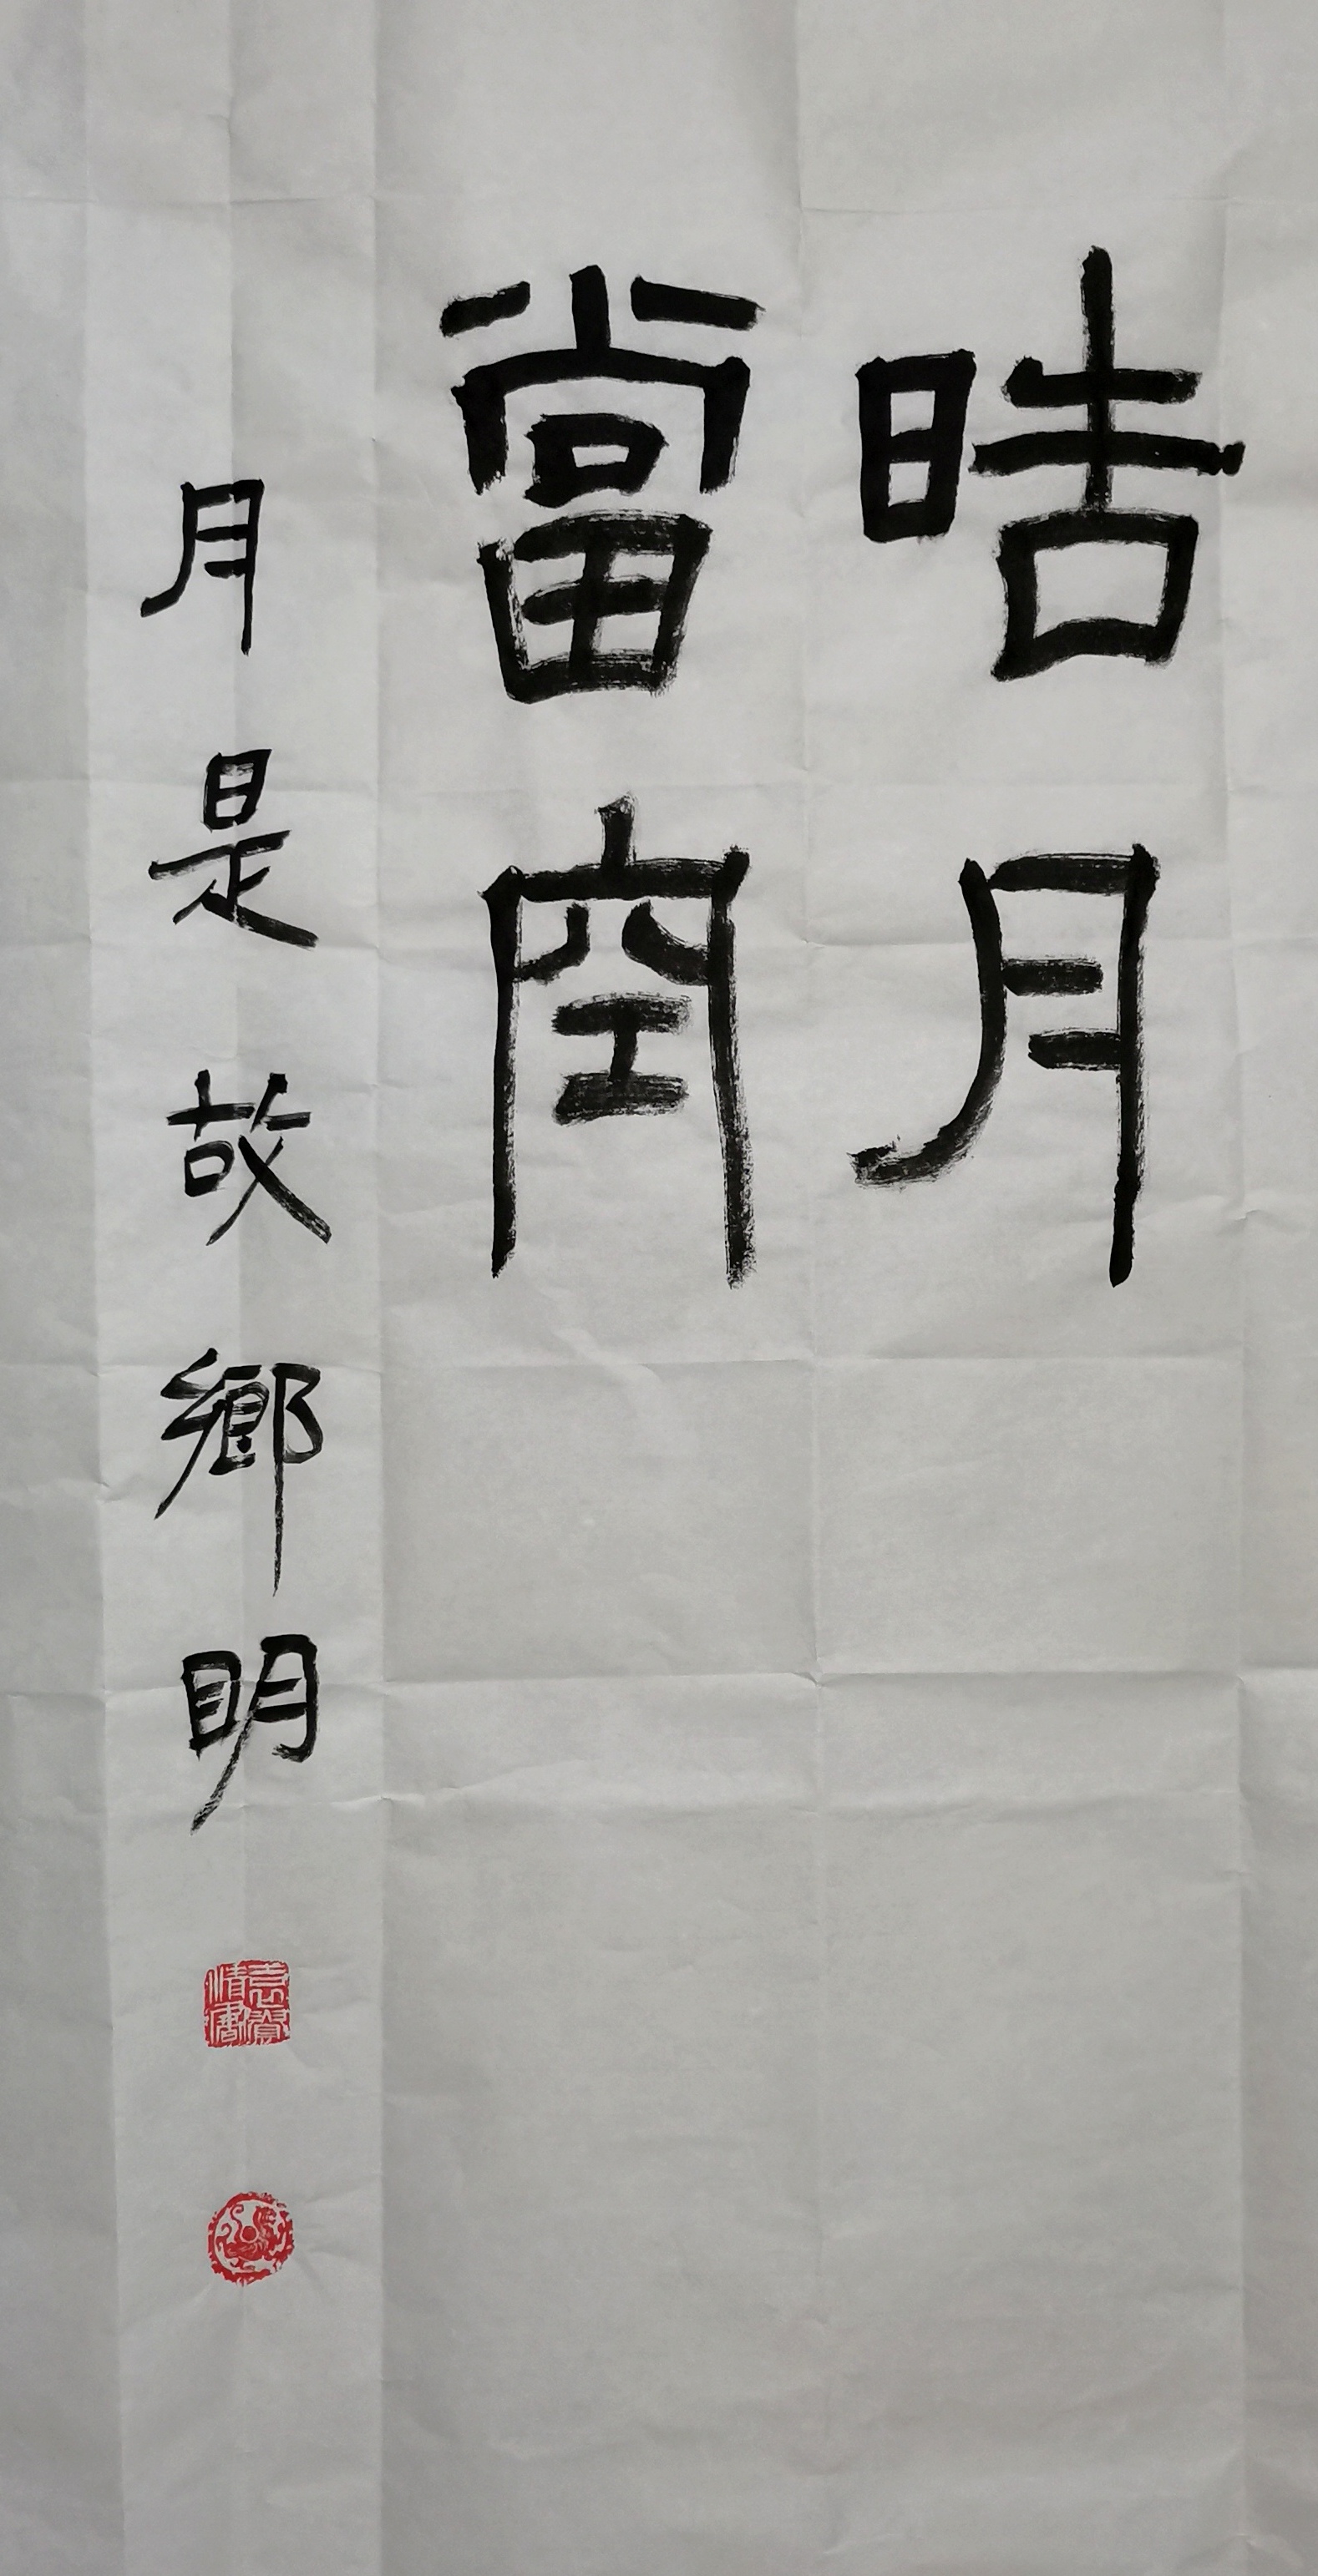 晧月
當空
月是故鄉明